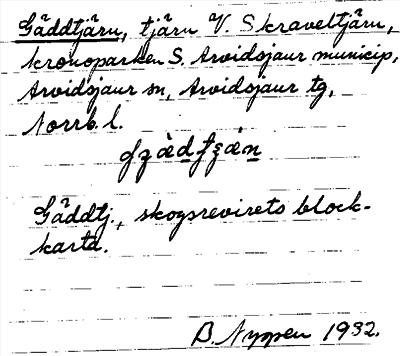 Gäddtjärn, tjärn V. Skraveltjärn,
kronoparken S. Arvidsjaur municip,
Arvidsjaur sn, Arvidsjaur tg,
Norrb. l.
Gäddtj., skogsrevirets block-
karta.
B. Nyppen 1932.